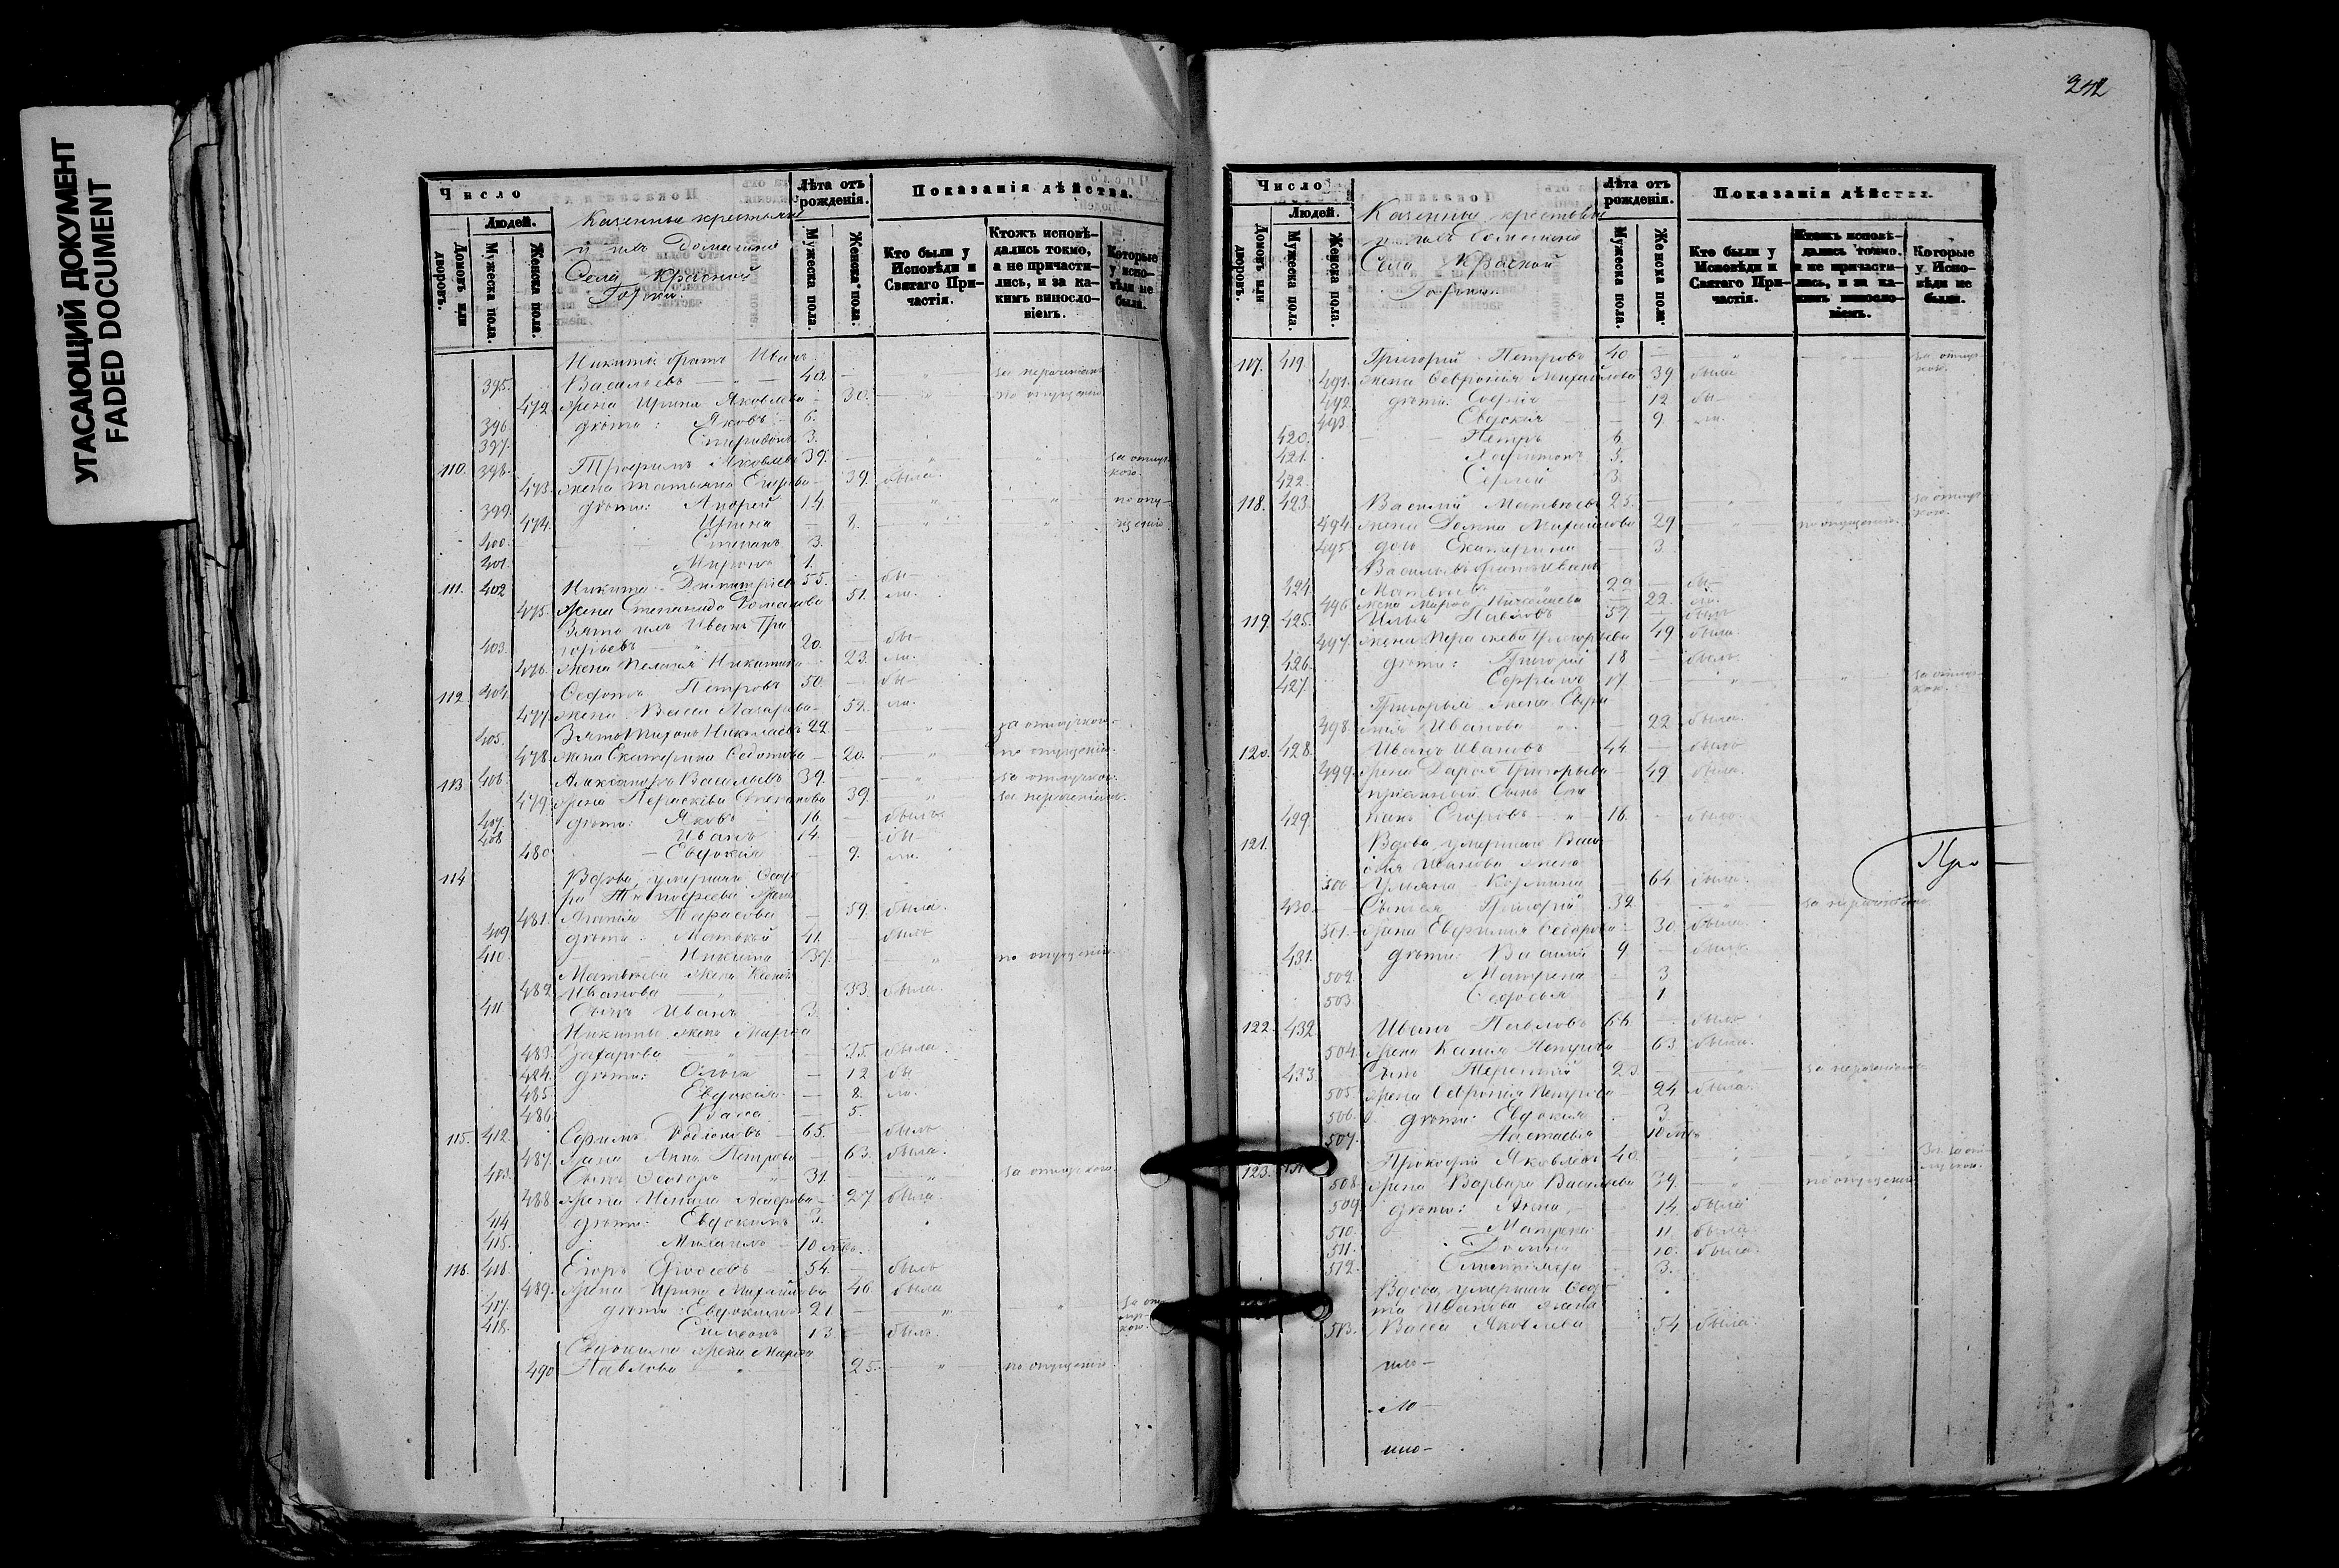 УГАСАЮЩИЙ ДОКУМЕНТ
FADED DOCUMENT
Число
Людей.
Домовъ или дворовъ.
Мужеска пола.
Женска пола.
Казенные крестьяне
и ихъ домашніе
Села Красной
Горки.
Лѣта отъ рожденія.
Мужеска пола.
Женска пола.
Показанія дѣйства.
Кто были у Исповѣди и Святаго Причастія.
Ктожъ исповѣдались токмо, а не причастились, и за какимъ винословіемъ.
Которые у исповѣди не были.
Никиты братъ Иванъ
395. Васильевъ 42. за нераченіемъ
472 жена Ирина Яковлева 30. по опущенію
396. дѣти: Яковъ 6.
397. Спиридонъ 3.
110. 398. Трофимъ Яковлевъ 39. за отлучкою.
473. жена Татьяна Егорова 39. была.
399. дѣти: Андрей 14. по опу-
474. Ирина 8. щенію
400. Степанъ 3.
401. Миронъ 1.
111. 402 Никита Димитріевъ 55. бы-
475. жена Степанида 51. ли.
Зять ихъ Иванъ Гри
403. горьевъ 20. бы-
476. жена Пелагія Никитина 23. ли.
112. 404. Ѳедотъ Петровъ 50. бы-
477. жена Васса Лазарева 52. ли.
405. Зять Тихонъ Николаевъ 22. за отлучкою.
478. жена Екатерина Ѳедотова 20. по опущенію.
113. 406. Александръ Васильевъ 39. за отлучкою.
479. жена Параскева Степанова 39. за нераченіемъ.
407. дѣти: Яковъ 16. былъ.
408 Иванъ 14. бы
480 Евдокія 9. ли.
114 Вдова, умершаго Ѳедо
ра Тимофеева жена
481. Агафія Тарасова 59. была.
409 дѣти: Матвѣй 41. былъ
410. Никита 37. по опущенію.
Матвѣева жена Ксенія
482 Иванова 33. была.
411. Сынъ Иванъ 3.
Никиты жена Марѳа
483. Захарова 35. была.
484. дѣти: Ольга 12 бы
485. Евдокія 8. ли.
486. Васса 5.
115. 412. Родіоновъ 65. былъ
487. жена Анна Петрова 63. была.
413. Сынъ Ѳедоръ 31. за отлучкою.
488 жена 27. была.
414 дѣти: Евдокимъ 3.
415. Михаилъ 10 мѣс.
116. 416. Егоръ 54. былъ
489. жена Ирина Михайлова 46. была
417. дѣти: Евдокимъ 21. за отлучкою.
418. Симеонъ 13. былъ.
Евдокима жена Марѳа
490 Павлова 25. по опущенію
242
Число
Людей.
Домовъ или дворовъ.
Мужеска пола.
Женска пола.
Казенные крестьяне
и ихъ домашніе
Села Красной
Горки.
Лѣта отъ рожденія.
Мужеска пола.
Женска пола.
Показанія дѣйства.
Кто были у Исповѣди и Святаго Причастія.
Ктожъ исповѣдались токмо, а не причастились, и за какимъ винословіемъ.
Которые у Исповѣди не были.
117. 419. Григорій Петровъ 40 за отлучкою.
491. жена Февронія Михайлова 39. была
492. дѣти: Софія 12 бы-
493. Евдокія 9. ли.
420. Петръ 6.
421. Харитонъ 5.
422. Сергій 3.
118. 423. Василій Матвѣевъ 25. за отлучкою.
494. жена Домна Михайлова 29 по опущенію.
495 дочь Екатерина 3.
Васильевъ братъ Иванъ
424. Матвѣевъ 22 бы-
496 жена Марѳа Николаева 22. ли.
119. 425. Илья Павловъ 57 былъ
497. жена Параскева Григорьева 49 была.
426. дѣти: Григорій 18 былъ
427. Ефремъ 17. за отлучкою.
Григорья жена Евфи
498. мія Иванова 22 была.
120. 428. Иванъ Ивановъ 44. былъ
499. жена Дарья Григорьева 49 была.
пріемный Сынъ Сте
429. панъ Егоровъ 16. былъ.
121. Вдова, умершаго Васи
лія Иванова жена
500 64. была.
430. Сынъ ея Григорій 32. за нераченіемъ.
501. жена Евфимія Ѳедорова 30. была.
431. дѣти: Василій 9 былъ
502. Матрена 3
503. Ѳеодосья 1
122. 432 Иванъ Павловъ 66. былъ
504. жена Ксенія Петрова 63. была.
433. Сынъ 23 за нераченіемъ
505. жена Февронія Петрова 24 была.
506. дѣти: Евдокія 3.
507. Анастасія 10 мѣс
123. Прокофій Яковлевъ 40. За отлучкою.
508. жена Варвара Васильева 39. по опущенію
509. дѣти: Анна 14. была
510. Матрена 11. была
511. Домна 10. была.
512. 3.
Вдова, умершаго Ѳедо
та Иванова жена
513. Васса Яковлева 54 была.
Про-